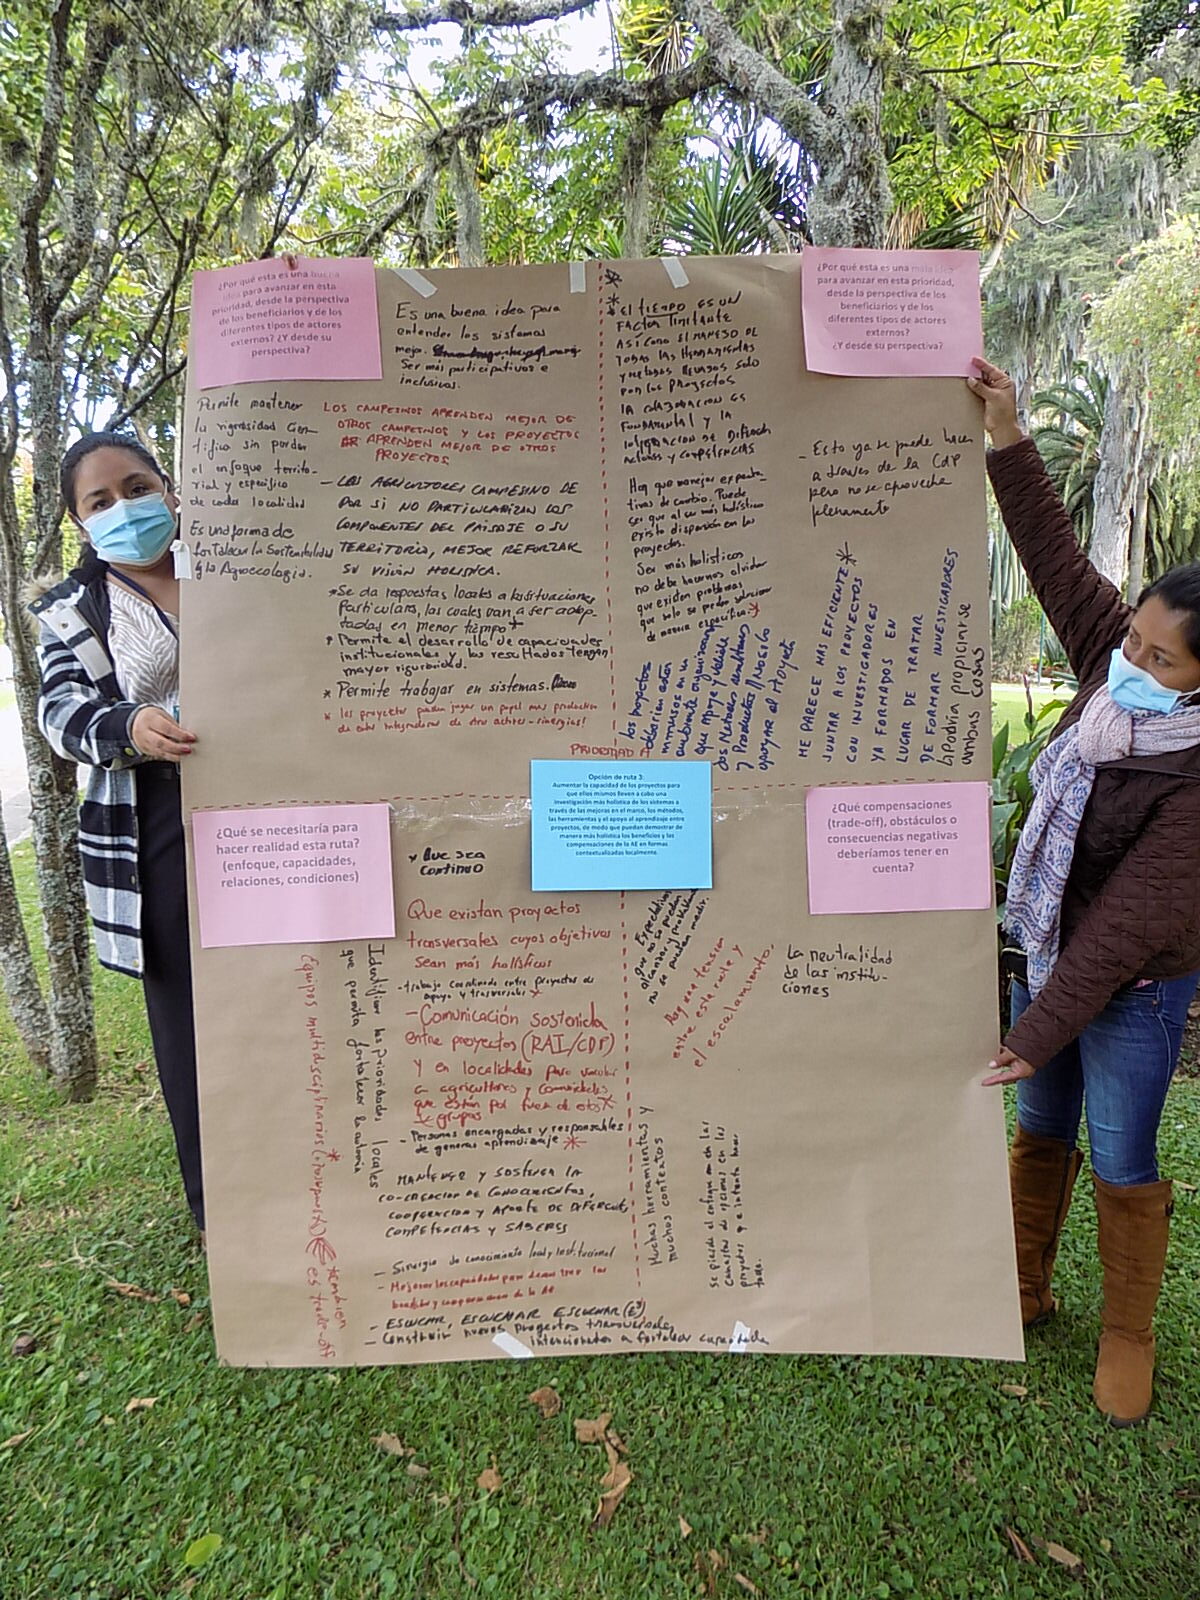 ¿Por qué esta es una buena
idea para avanzar en esta
prioridad, desde la perspectiva
de los beneficiarios y de los
diferentes tipos de actores
externos? ¿Y desde su
perspectiva?
Es una buena idea para
entender los sistemas
mejor.
Ser más participativos e
inclusivos.
Permite mantener
la rigurosidad cien-
tifica sin perder
el enfoque territo-
rial y especifico
de cada localidad
Es una forma de
fortalecer la Sostenibilidad
y la Agroecologia.
LOS CAMPESINOS APRENDEN MEJOR DE
OTROS CAMPESINOS Y LOS PROYECTOS
APRENDEN MEJOR DE OTROS
PROYECTOS
- LOS AGRICULTORES CAMPESINO DE
POR SI NO PARTICULARIZAN LOS
COMPONENTES DEL PAISAJE O SU
TERRITORIO, MEJOR REFORZAR
SU VISIÓN HOLISTICA.
* Se da respuestas locales a las situaciones
particulares, las cuales van a ser adop-
tadas en menor tiempo *
* Permite el desarrollo de capacidades
institucionales y los resultados tengan
mayor rigurosidad.
* Permite trabajar en sistemas.
* los proyectos pueden jugar un papel mas productivo
de este integradoras de otro actores - sinergias!
* EL TIEMPO ES UN
FACTOR LIMITANTE
ASI COMO EL MANEJO DE
TODAS LAS HERRAMIENTAS
Y METODOS USUADOS SOLO
POR LOS PROYECTOS
LA COLABORACION ES
FUNDAMENTAL Y LA
INTEGRACION DE
ACTORES Y COMPETENCIAS
Hay que manejar expecta-
tivas de cambio. Puede
ser que al ser más holístico
exista dispersión en los
proyectos.
Ser más holísticos
no debe hacernos olvidar
que existen problemas
que solo se pueden solucionar
de manera especifica. *
los proyectos
deberian estar
inmersos en un
ambiente organizacional
que apoye y valide
y Productos // NO SOLO
apoyar el proyecto
¿Por qué esta es una mala idea
para avanzar en esta prioridad,
desde la perspectiva de los
beneficiarios y de los
diferentes tipos de actores
externos?
¿Y desde su perspectiva?
- Esto ya se puede hacer
a traves de la CdP
pero no se aprovecha
plenamente
ME PARECE MAS EFICIENTE *
JUNTAR A LOS PROYECTOS
CON INVESTIGADORES
YA FORMADOS EN
LUGAR DE TRATAR
DE FORMAR INVESTIGADORES
Podría propiciarse
ambas cosas
PRIORIDAD A
Opción de ruta 3:
Aumentar la capacidad de los proyectos para
que ellos mismos lleven a cabo una
investigación más holística de los sistemas a
través de las mejoras en el marco, los métodos,
las herramientas y el apoyo al aprendizaje entre
proyectos, de modo que puedan demostrar de
manera más holística los beneficios y las
compensaciones de la AE en formas
contextualizadas localmente.
¿Qué se necesitaría para
hacer realidad esta ruta?
(enfoque, capacidades,
relaciones, condiciones)
* Que sea
continuo
Que existan proyectos
transversales cuyos objetivos
sean más holísticos
- trabajo coordinado entre proyectos de
apoyo y trasversales *
- Comunicación sostenida
entre proyectos (RAI/CDP)
y en localidades para vincular
a agricultores y comunidades
que están por fuera de estos *
grupos
- Personas encargadas y responsables
de generar aprendizaje *
MANTENGA Y SOSTENGA LA
CO-CREACION DE CONOCIMIENTOS,
COOPERACION Y APORTE DE DIFERENTES
COMPETENCIAS Y SABERES
- Sinergia de conocimiento local y institucional
- Mejorar las capacidades para demostrar los
beneficios y compensaciones de la AE
- ESCUCHAR, ESCUCHAR ESCUCHAR (E³)
- Construir nuevos proyectos transversales
intencionados a fortalecer capacidades
Identificar las prioridades locales
que permita fortalecer la autonomia
Equipos multidisciplinarios
también
es trade-off
¿Qué compensaciones
(trade-off), obstáculos o
consecuencias negativas
deberíamos tener en
cuenta?
Expectativas
que no se puedan
alcanzar y probablemente
no se puedan medir.
Hay una tension
entre este ruta y
el escalamiento.
La neutralidad
de las institu-
ciones
Muchas herramientas y
muchos contextos
Se pierde el enfoque en las
canastas de opciones en los
proyectos y se intenta hacer
todo.